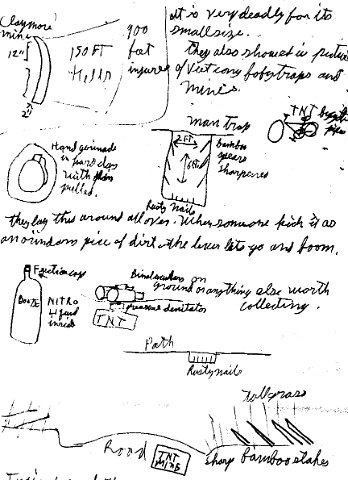 Claymore
mine
12"
2"
150 FT
Kill
900
feet
injured
it is very deadly for its
small size.
they also showed us pictures
of Viet cong bobytraps and
mines.
man trap
TNT
2 FT
6 ft
bamboo
spears
sharpened
Rusty nails
Hand grenade
in hard clay
with pin
pulled.
they lay this around all over. When someone pick it as
an ordinary pice of dirt the lever lets go and boom.
Friction cap
BOOZE
NITRO
Binoculars on
ground or anything else worth
collecting.
pressure detinator
TNT
Path
Rusty nails
Tall grass
Road
TNT
MINE
sharp bamboo stakes